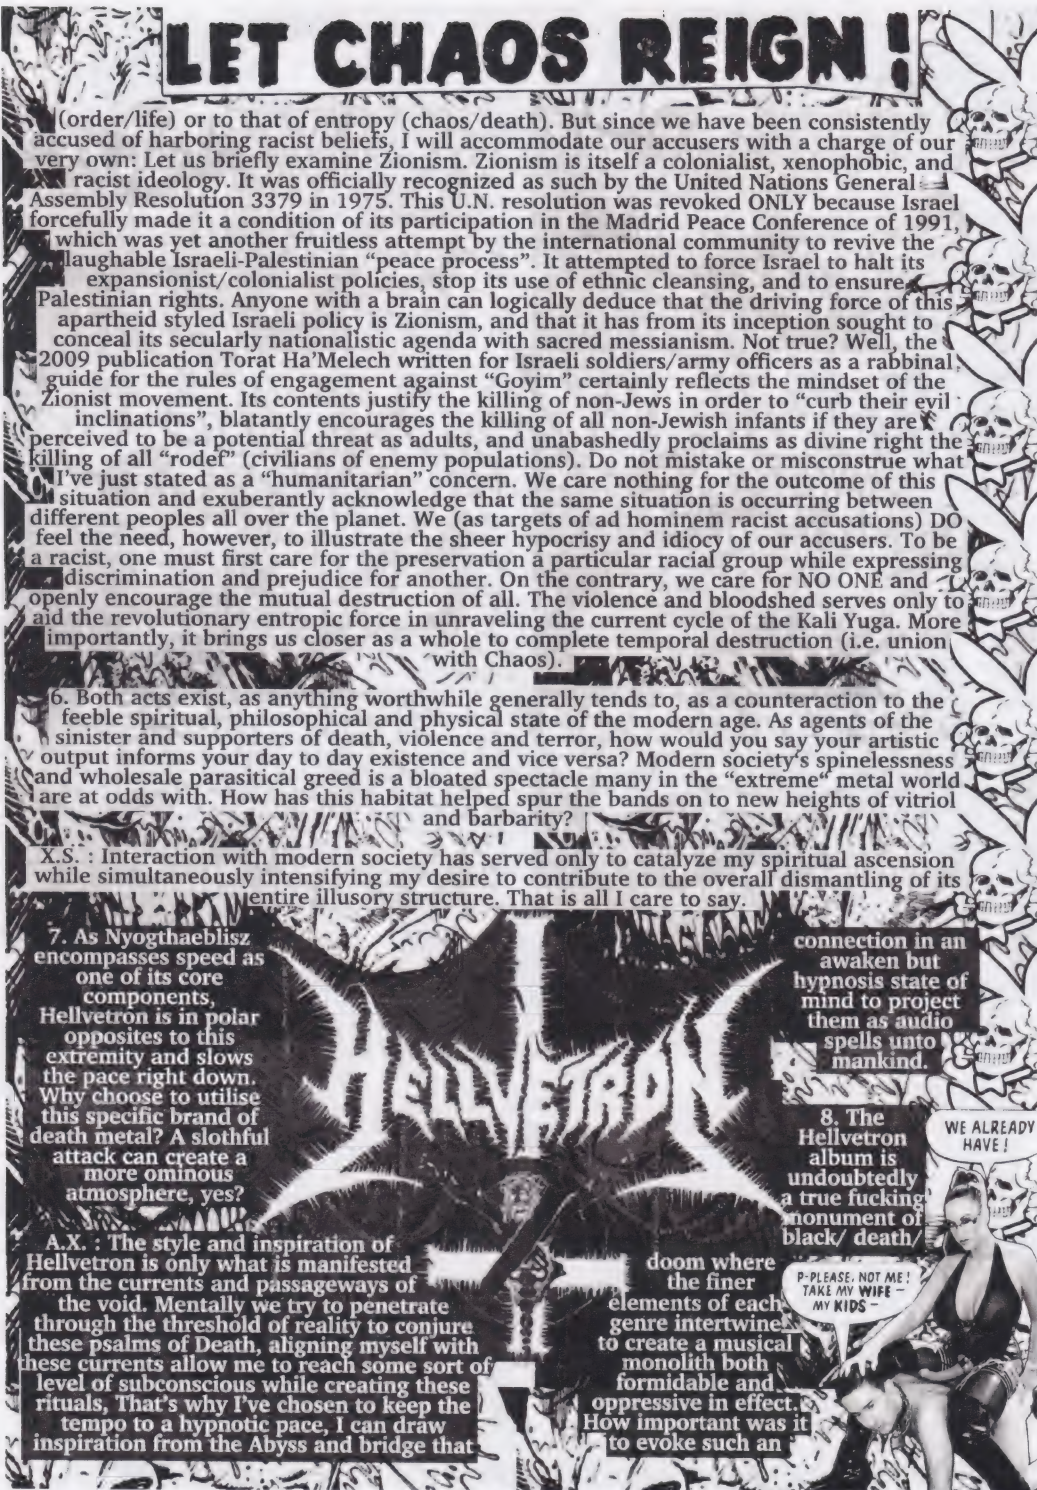 LET CHAOS REIGN !
(order/life) or to that of entropy (chaos/death). But since we have been consistently
accused of harboring racist beliefs, I will accommodate our accusers with a charge of our
very own: Let us briefly examine Zionism. Zionism is itself a colonialist, xenophobic, and
racist ideology. It was officially recognized as such by the United Nations General
Assembly Resolution 3379 in 1975. This U.N. resolution was revoked ONLY because Israel
forcefully made it a condition of its participation in the Madrid Peace Conference of 1991,
which was yet another fruitless attempt by the international community to revive the
laughable Israeli-Palestinian “peace process”. It attempted to force Israel to halt its
expansionist/colonialist policies, stop its use of ethnic cleansing, and to ensure
Palestinian rights. Anyone with a brain can logically deduce that the driving force of this
apartheid styled Israeli policy is Zionism, and that it has from its inception sought to
conceal its secularly nationalistic agenda with sacred messianism. Not true? Well, the
2009 publication Torat Ha’Melech written for Israeli soldiers/army officers as a rabbinal
guide for the rules of engagement against “Goyim” certainly reflects the mindset of the
Zionist movement. Its contents justify the killing of non-Jews in order to “curb their evil
inclinations”, blatantly encourages the killing of all non-Jewish infants if they are
perceived to be a potential threat as adults, and unabashedly proclaims as divine right the
killing of all “rodef” (civilians of enemy populations). Do not mistake or misconstrue what
I’ve just stated as a “humanitarian” concern. We care nothing for the outcome of this
situation and exuberantly acknowledge that the same situation is occurring between
different peoples all over the planet. We (as targets of ad hominem racist accusations) DO
feel the need, however, to illustrate the sheer hypocrisy and idiocy of our accusers. To be
a racist, one must first care for the preservation a particular racial group while expressing
discrimination and prejudice for another. On the contrary, we care for NO ONE and
openly encourage the mutual destruction of all. The violence and bloodshed serves only to
aid the revolutionary entropic force in unraveling the current cycle of the Kali Yuga. More
importantly, it brings us closer as a whole to complete temporal destruction (i.e. union
with Chaos).
6. Both acts exist, as anything worthwhile generally tends to, as a counteraction to the
feeble spiritual, philosophical and physical state of the modern age. As agents of the
sinister and supporters of death, violence and terror, how would you say your artistic
output informs your day to day existence and vice versa? Modern society's spinelessness
and wholesale parasitical greed is a bloated spectacle many in the "extreme" metal world
are at odds with. How has this habitat helped spur the bands on to new heights of vitriol
and barbarity?
X.S. : Interaction with modern society has served only to catalyze my spiritual ascension
while simultaneously intensifying my desire to contribute to the overall dismantling of its
entire illusory structure. That is all I care to say.
7. As Nyogthaeblisz
encompasses speed as
one of its core
components,
Hellvetron is in polar
opposites to this
extremity and slows
the pace right down.
Why choose to utilise
this specific brand of
death metal? A slothful
attack can create a
more ominous
atmosphere, yes?
HELLVETRON
A.X. : The style and inspiration of
Hellvetron is only what is manifested
from the currents and passageways of
the void. Mentally we try to penetrate
through the threshold of reality to conjure
these psalms of Death, aligning myself with
these currents allow me to reach some sort of
level of subconscious while creating these
rituals, That’s why I’ve chosen to keep the
tempo to a hypnotic pace, I can draw
inspiration from the Abyss and bridge that
connection in an
awaken but
hypnosis state of
mind to project
them as audio
spells unto
mankind.
8. The
Hellvetron
album is
undoubtedly
a true fucking
monument of
black/ death/
doom where
the finer
elements of each
genre intertwine
to create a musical
monolith both
formidable and
oppressive in effect.
How important was it
to evoke such an
WE ALREADY
HAVE !
P-PLEASE, NOT ME !
TAKE MY WIFE –
MY KIDS –